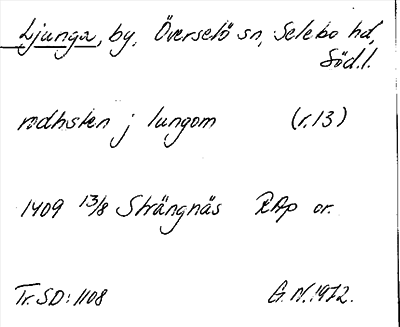 Ljunga, by, Överselö sn, Selebo hd,
Söd.l.
rodhsten j lungom (r.13)
1409 13/8 Strängnäs RAp or.
Tr. SD: 1108 G.N. 1972.